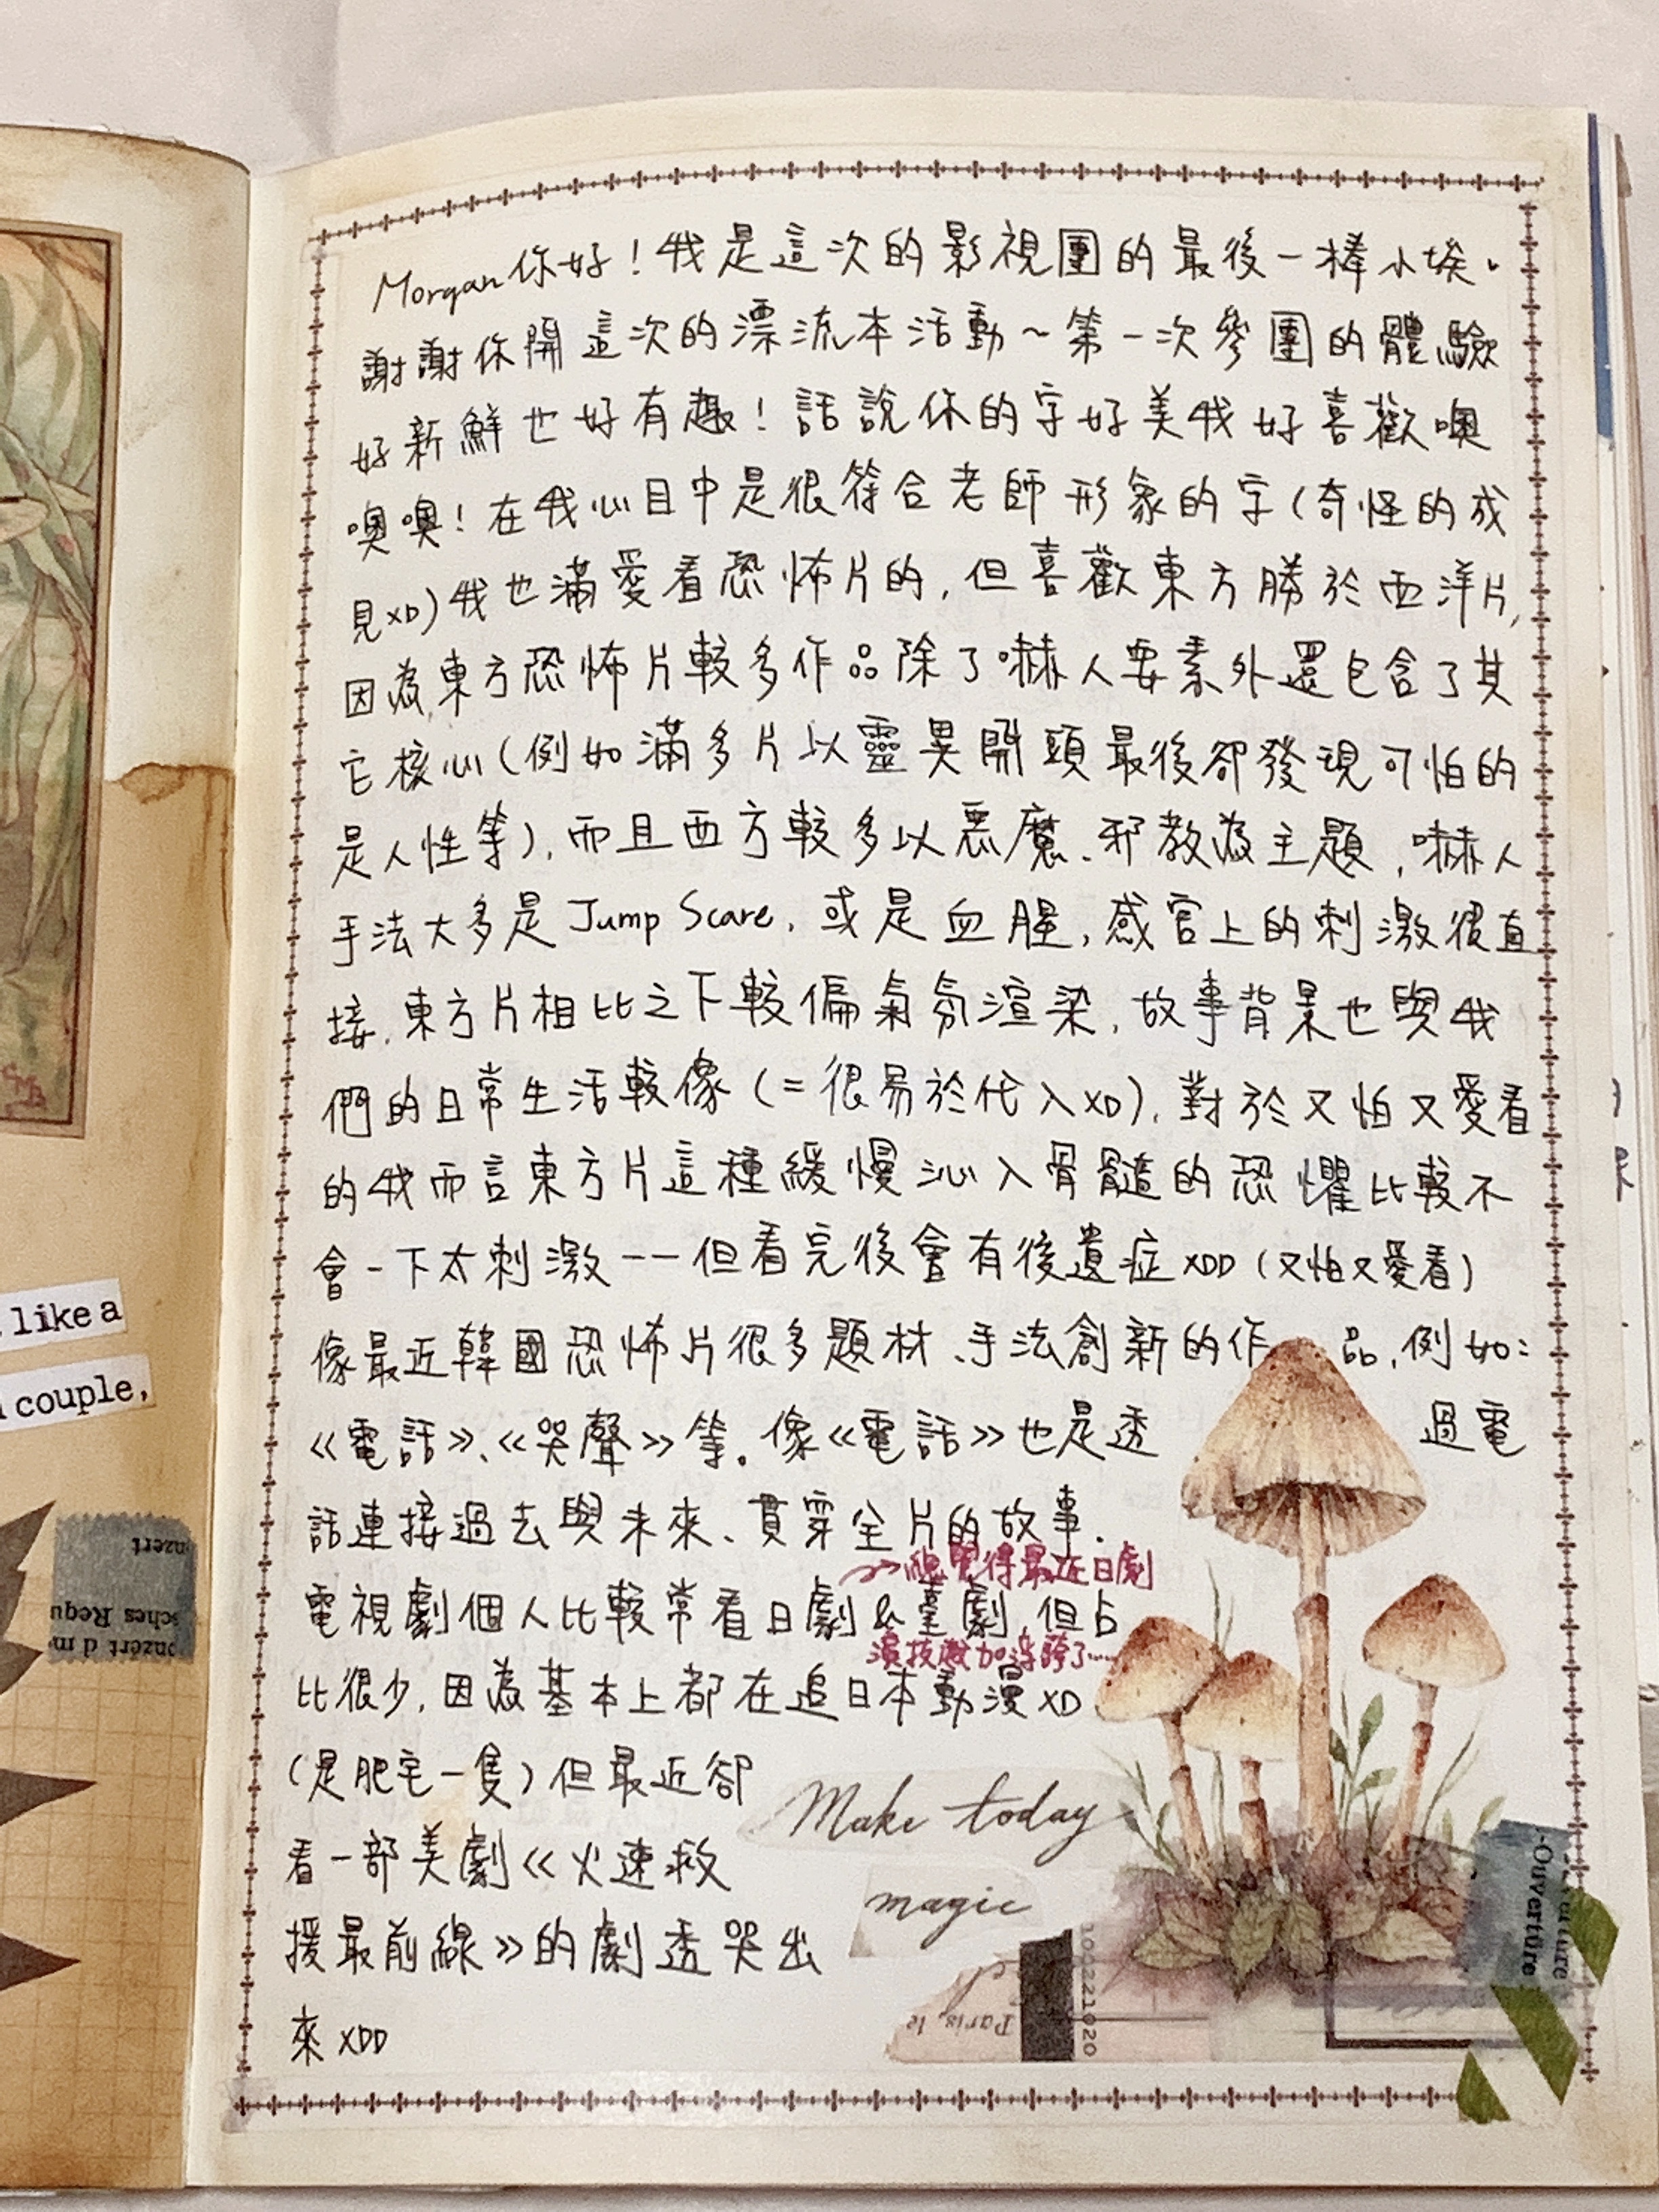 Morgan你好！我是這次的影視團的最後一棒小埃、
謝謝你開這次的漂流本活動～第一次參團的體驗
好新鮮也好有趣！話說你的字好美我好喜歡噢
噢噢！在我心目中是很符合老師形象的字(奇怪的成
見XD)我也滿愛看恐怖片的，但喜歡東方勝於西洋片，
因為東方恐怖片較多作品除了嚇人要素外還包含了其
它核心(例如滿多片以靈異開頭最後卻發現可怕的
是人性等)，而且西方較多以惡魔、邪教為主題，嚇人
手法大多是Jump Scare，或是血腥，感官上的刺激很直
接，東方片相比之下較偏氣氛渲染，故事背景也與我
們的日常生活較像(=很易於代入XD)，對於又怕又愛看
的我而言東方片這種緩慢沁入骨髓的恐懼比較不
會一下太刺激——但看完後會有後遺症XDD(又怕又愛看)
像最近韓國恐怖片很多題材、手法創新的作品，例如：
《電話》、《哭聲》等。像《電話》也是透過電
話連接過去與未來、貫穿全片的故事.
→總覺得最近日劇
電視劇個人比較常看日劇&臺劇，但占
演技越加浮誇了……
比很少，因為基本上都在追日本動漫XD
(是肥宅一隻)但最近卻
看一部美劇《火速救
援最前線》的劇透哭出
來XDD
Make today
magic
Paris, le
100221020
Ouvertüre
like a
couple,
nzert
sches Requ
onzert d m